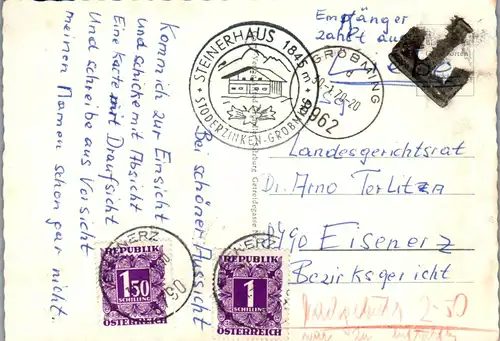 Bei schöner Aussicht
Komm ich zur Einsicht
und schicke mit Absicht
Eine Karte mit Draufsicht
Und schreibe aus Vorsicht
meinen Namen schon gar nicht.
STEINERHAUS 1845 m
STODERZINKEN-GRÖBMING
Empfänger
zahlt
GRÖBMING
8962
Landesgerichtsrat
Dr. Arno Terlitza
8790 Eisenerz
Bezirksgericht
2-50
EISENERZ
REPUBLIK
1 50
SCHILLING
ÖSTERREICH
EISENERZ
REPUBLIK
1
SCHILLING
ÖSTERREICH